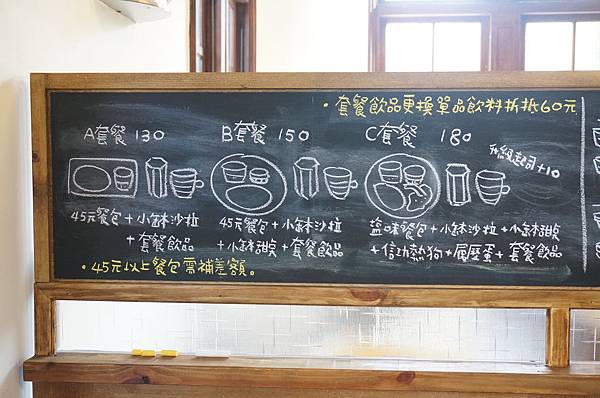 ・套餐飲品更換單品飲料折抵60元
A套餐 130
B套餐 150
C套餐 180
升級起司+10
45元餐包+小缽沙拉
+套餐飲品
45元餐包+小缽沙拉
+小缽甜點+套餐飲品
鹽味餐包+小缽沙拉+小缽甜點
+信功熱狗+履歷蛋+套餐飲品
・45元以上餐包需補差額。